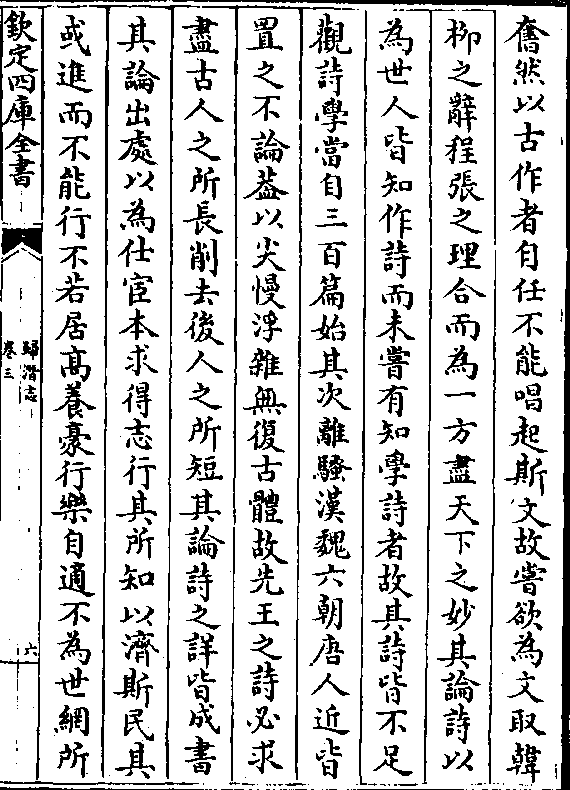 奮然以古作者自任不能唱起斯文故嘗欲為文取韓
栁之辭程張之理合而為一方盡天下之妙其論詩以
為世人皆知作詩而未嘗有知學詩者故其詩皆不足
觀詩學當自三百篇始其次離騷漢魏六朝唐人近皆
置之不論葢以尖慢浮雜無復古體故先王之詩必求
盡古人之所長削去後人之所短其論詩之詳皆成書
其論出處以為仕宦本求得志行其所知以濟斯民其
或進而不能行不若居髙養豪行樂自適不為世網所
欽定四庫全書
歸潛志
卷三
六